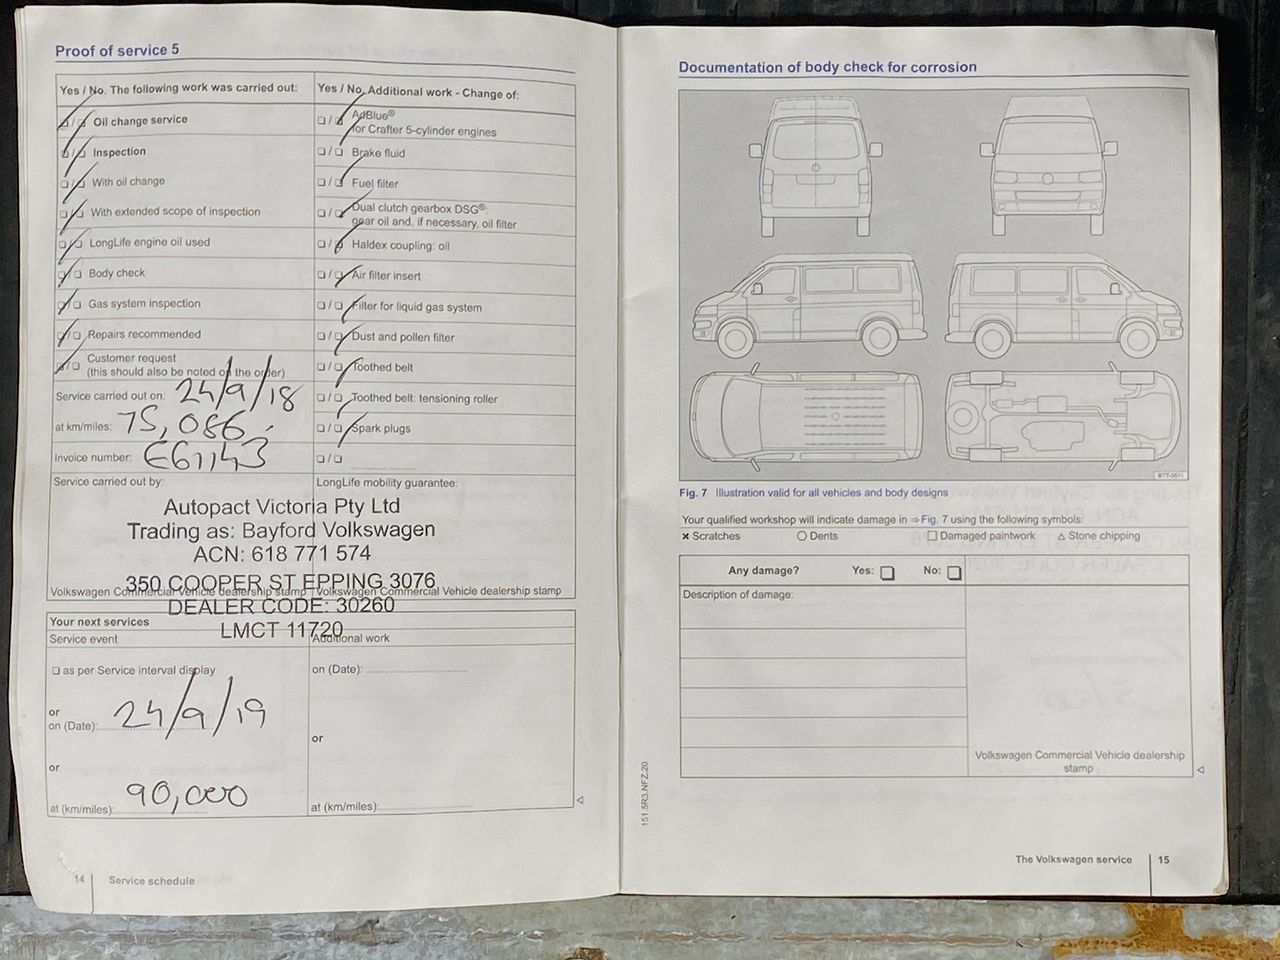 Proof of service 5
Yes / No. The following work was carried out:
Oil change service
Inspection
With oil change
With extended scope of inspection
LongLife engine oil used
Body check
Gas system inspection
Repairs recommended
Customer request
(this should also be noted on the order)
Service carried out on: 24/9/18
at km/miles: 75,086
Invoice number: E61143
Yes / No. Additional work - Change of:
AdBlue®
for Crafter 5-cylinder engines
Brake fluid
Fuel filter
Dual clutch gearbox DSG®:
gear oil and, if necessary, oil filter
Haldex coupling: oil
Air filter insert
Filter for liquid gas system
Dust and pollen filter
Toothed belt
Toothed belt: tensioning roller
Spark plugs
Service carried out by:
LongLife mobility guarantee:
Autopact Victoria Pty Ltd
Trading as: Bayford Volkswagen
ACN: 618 771 574
350 COOPER ST EPPING 3076
Volkswagen Commercial Vehicle dealership stamp
Volkswagen Commercial Vehicle dealership stamp
DEALER CODE: 30260
LMCT 11720
Your next services
Service event
Additional work
as per Service interval display
or
on (Date): 24/9/19
or
at (km/miles): 90,000
on (Date):
or
at (km/miles):
14 Service schedule
Documentation of body check for corrosion
Fig. 7 Illustration valid for all vehicles and body designs
Your qualified workshop will indicate damage in ⇒ Fig. 7 using the following symbols:
× Scratches ○ Dents □ Damaged paintwork △ Stone chipping
Any damage? Yes: No:
Description of damage:
Volkswagen Commercial Vehicle dealership
stamp
151.5R3.NFZ.20
The Volkswagen service 15